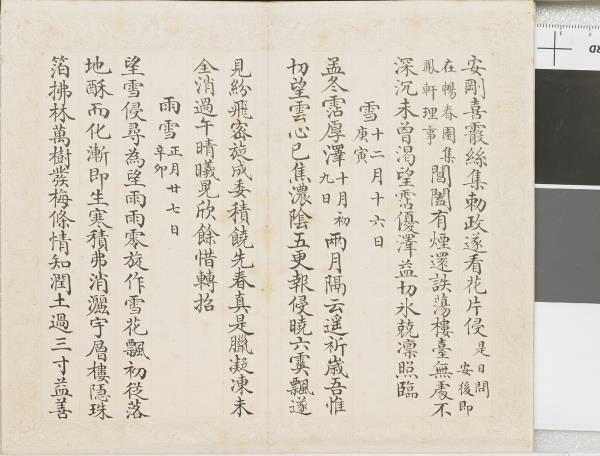 安剛喜霰絲集勅政遂看花片侵是日問安後即
在暢春園集鳳軒理事閶闔有煙還詄蕩樓臺無處不
深沉未曾渴望霑優澤益切氷兢凛照臨
雪十二月十六日庚寅
孟冬霑厚澤十月初九日兩月隔云遙祈歲吾惟
切望雲心已焦濃陰五更報侵曉六霙飄遂
見紛飛密旋成委積饒先春真是臘凝凍未
全消過午晴曦晃欣餘惜轉招
雨雪正月廿七日辛卯
望雪侵尋為望雨雨零旋作雪花飄初從落
地酥而化漸即生寒積弗消灑宇層樓隱珠
箔拂林萬樹發梅條情知潤土過三寸益善